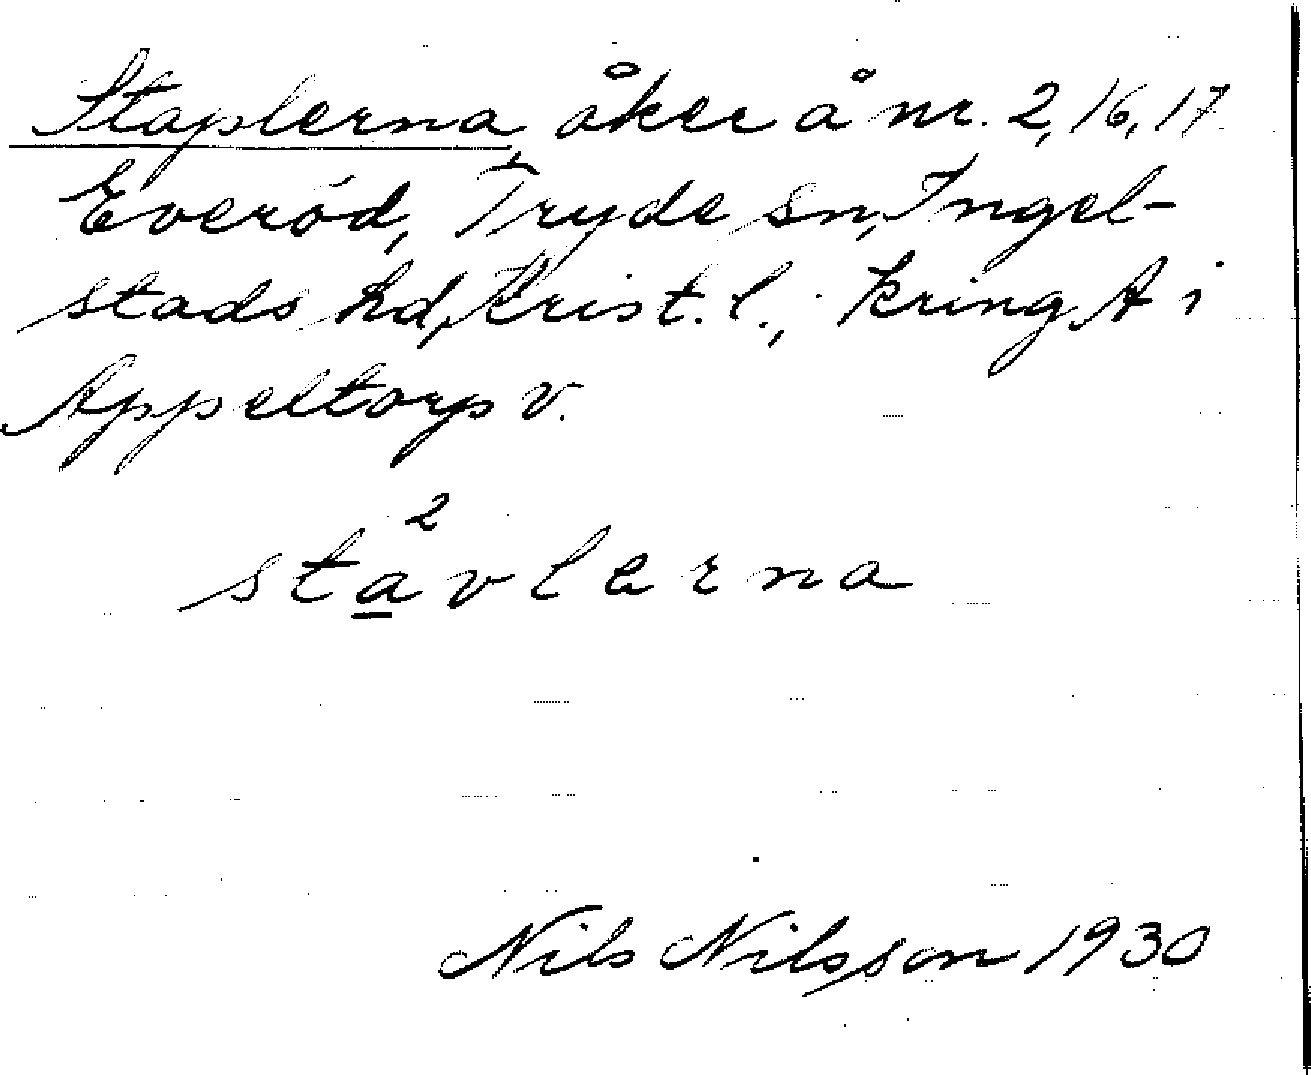 Staplerna, åker å nr. 2, 16, 17
Everöd, Tryde sn, Ingel-
stads hd, Krist. l., kring A i
Appeltorp v.
2
stavlerna
Nils Nilsson 1930